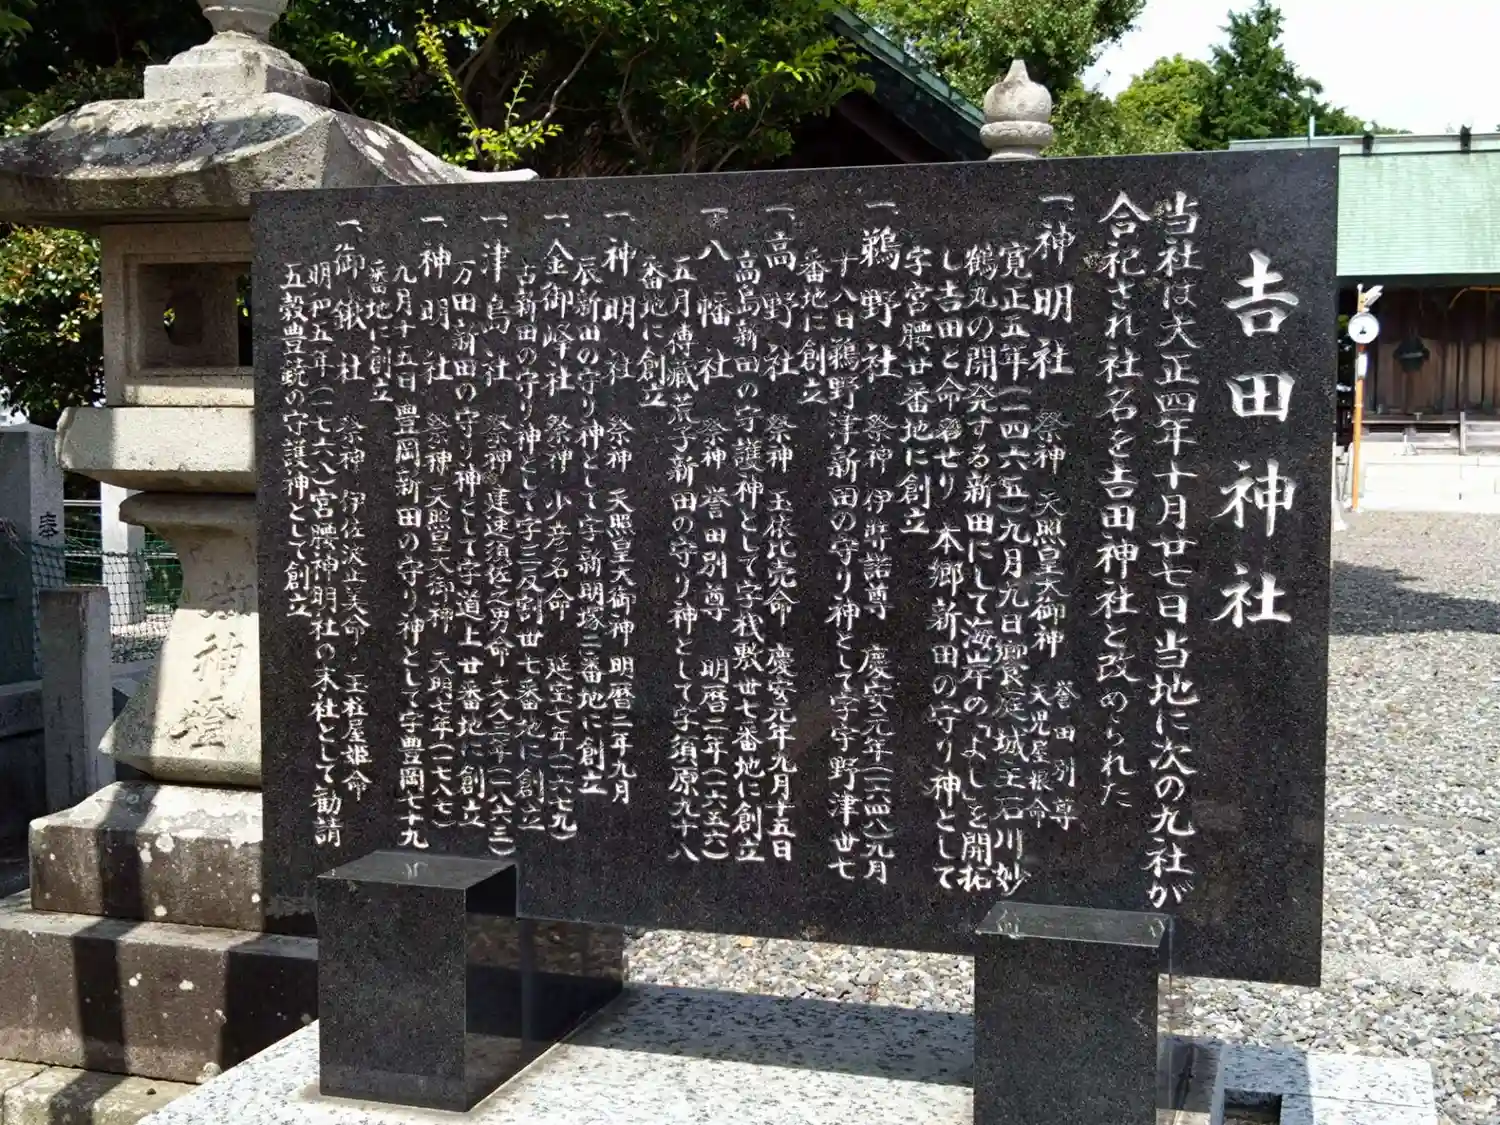 吉田神社
当社は大正四年十月廿七日当地に次の九社が
合祀され社名を吉田神社と改められた
一、神明社 祭神 天照皇大御神 誉田別尊 天児屋根命
寛正五年(一四六五)九月九日饗庭城主石川妙
鶴丸の開発する新田にして海岸の「よし」を開拓
し吉田と命名せり 本郷新田の守り神として
字宮腰廿番地に創立
一、鵜野社 祭神 伊弉諾尊 慶安元年(一六四八)九月
十八日鵜野津新田の守り神として字宇野津丗七
番地に創立
一、高野社 祭神 玉依比売命 慶安元年九月十五日
高島新田の守護神として字桟敷丗七番地に創立
一、八幡社 祭神 誉田別尊 明暦二年(一六五六)
五月傳蔵荒子新田の守り神として字須原九十八
番地に創立
一、神明社 祭神 天照皇大御神 明暦二年九月
辰新田の守り神として字新明塚二番地に創立
一、金御峰社 祭神 少彦名命 延宝七年(一六七九)
古新田の守り神として字三反割丗七番地に創立
一、津島社 祭神 建速須佐之男命 文久二年(一八六二)
万田新田の守り神として字道上廿番地に創立
一、神明社 祭神 天照皇大御神 天明七年(一七八七)
九月十五日豊岡新田の守り神として字豊岡七十九
番地に創立
一、御鍬社 祭神 伊佐波止美命・玉柱屋姫命
明和五年(一七六八)宮腰神明社の末社として勧請
五穀豊饒の守護神として創立
御神燈
奉